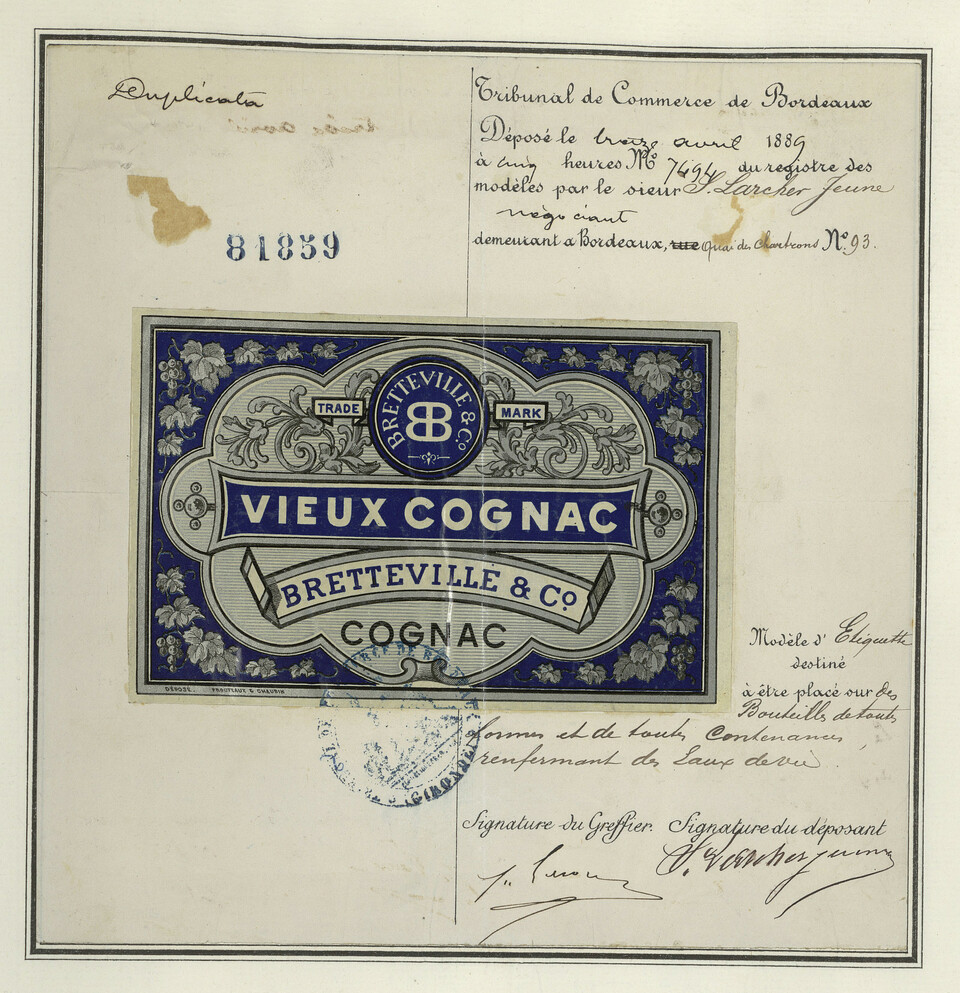 Duplicata
81859
Tribunal de Commerce de Bordeaux
Déposé le treize avril 1889
à cinq heures No 7494 du registre des
modèles par le sieur S. Larcher Jeune
négociant
demeurant à Bordeaux, rue Quai des Chartrons No. 93.
BRETTEVILLE & Co
BB
TRADE MARK
VIEUX COGNAC
BRETTEVILLE & Co
COGNAC
DÉPOSÉ. PROUTEAUX & CHAUDIN
Modèle d'Etiquette
destiné
à être placé sur des
Bouteilles de toutes
formes et de toutes Contenances,
renfermant des Eaux de vie.
GIRONDE
Signature du Greffier. Signature du déposant
S. Larcher jeune